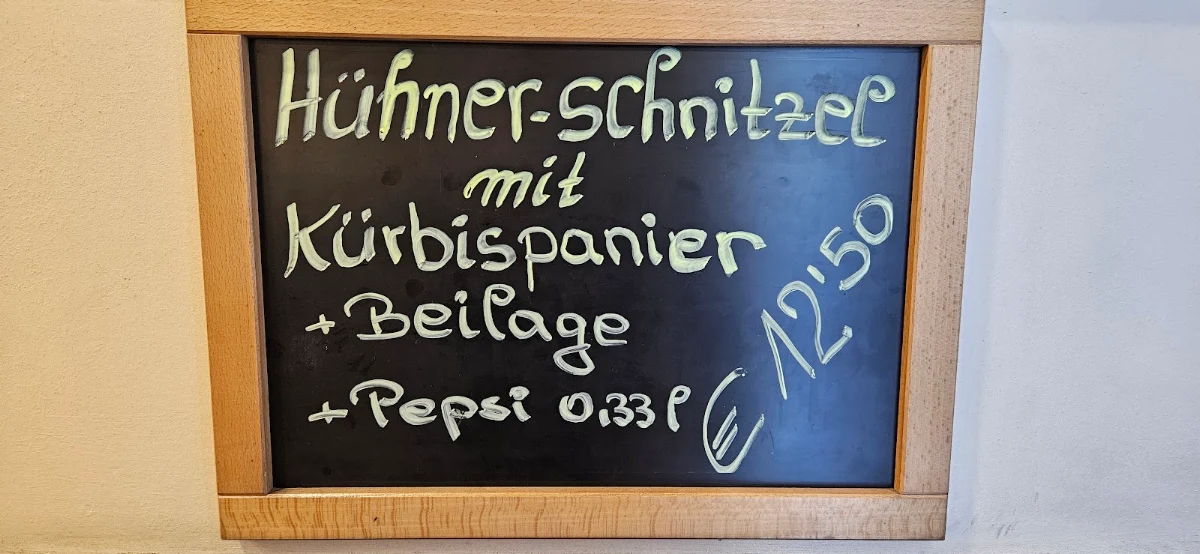 Hühner-schnitzel
mit
Kürbispanier
+ Beilage
+ Pepsi 0,33 l
€ 12'50